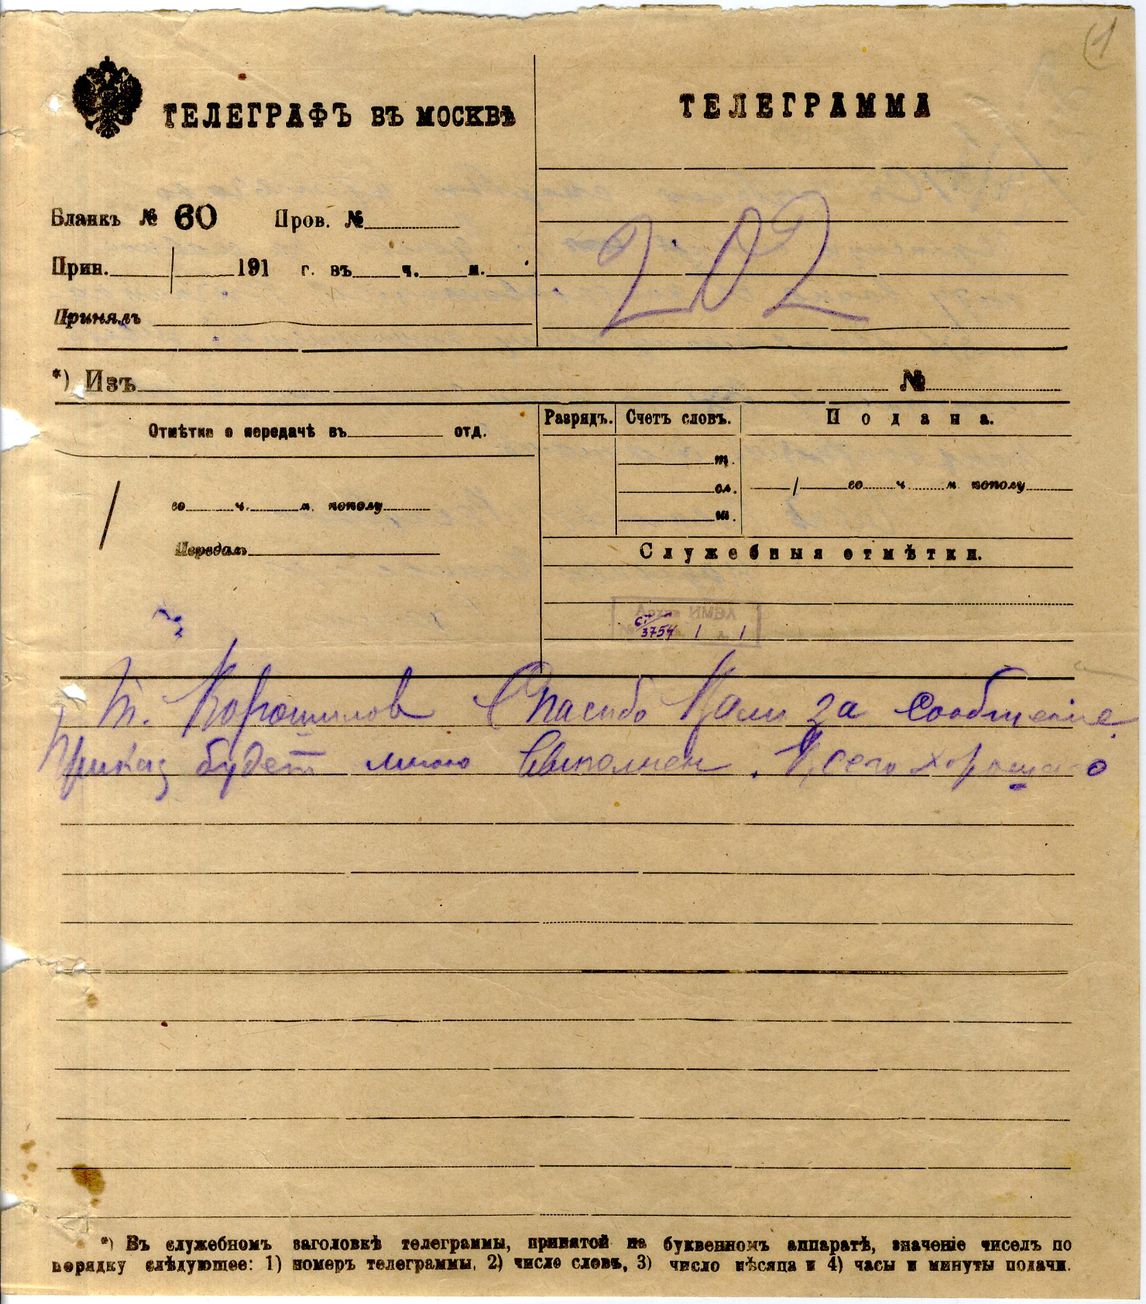 1
ТЕЛЕГРАФЪ ВЪ МОСКВѢ
ТЕЛЕГРАММА
Бланкъ № 60 Пров. №
202
Прин. / 191 г. въ ч. м.
Принялъ
*) Изъ №
Отмѣтка о передачѣ въ отд.
Разрядъ. Счетъ словъ. Подана.
т.
сл.
ш.
/ го ч. м. пополу
/ го ч. м. пополу
Передалъ
Служебныя отмѣтки.
Архив ИМЭЛ
3754
Т. Ворошилов Спасибо Вам за сообщение
Приказ будет мною выполнен. Всего хорошаго
*) Въ служебномъ заголовкѣ телеграммы, принятой на буквенномъ аппаратѣ, значеніе чиселъ по
порядку слѣдующее: 1) номеръ телеграммы, 2) число словъ, 3) число мѣсяца и 4) часы и минуты подачи.